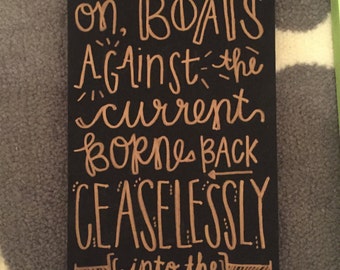 on, BOATS
AGAINST the
current
BORNE BACK
CEASELESSLY
into the